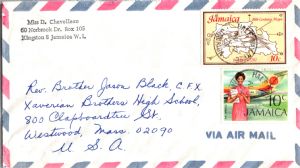 Miss D. Chevelleau
60 Norbrook Dr. Box 105
Kingston 8 Jamaica W.I.
Jamaica
10c
Rev. Brother Jason Black, C.F.X.
Xaverian Brothers High School,
800 Clapboardtree St.
Westwood, Mass. 02090
U. S. A
10c
JAMAICA
VIA AIR MAIL